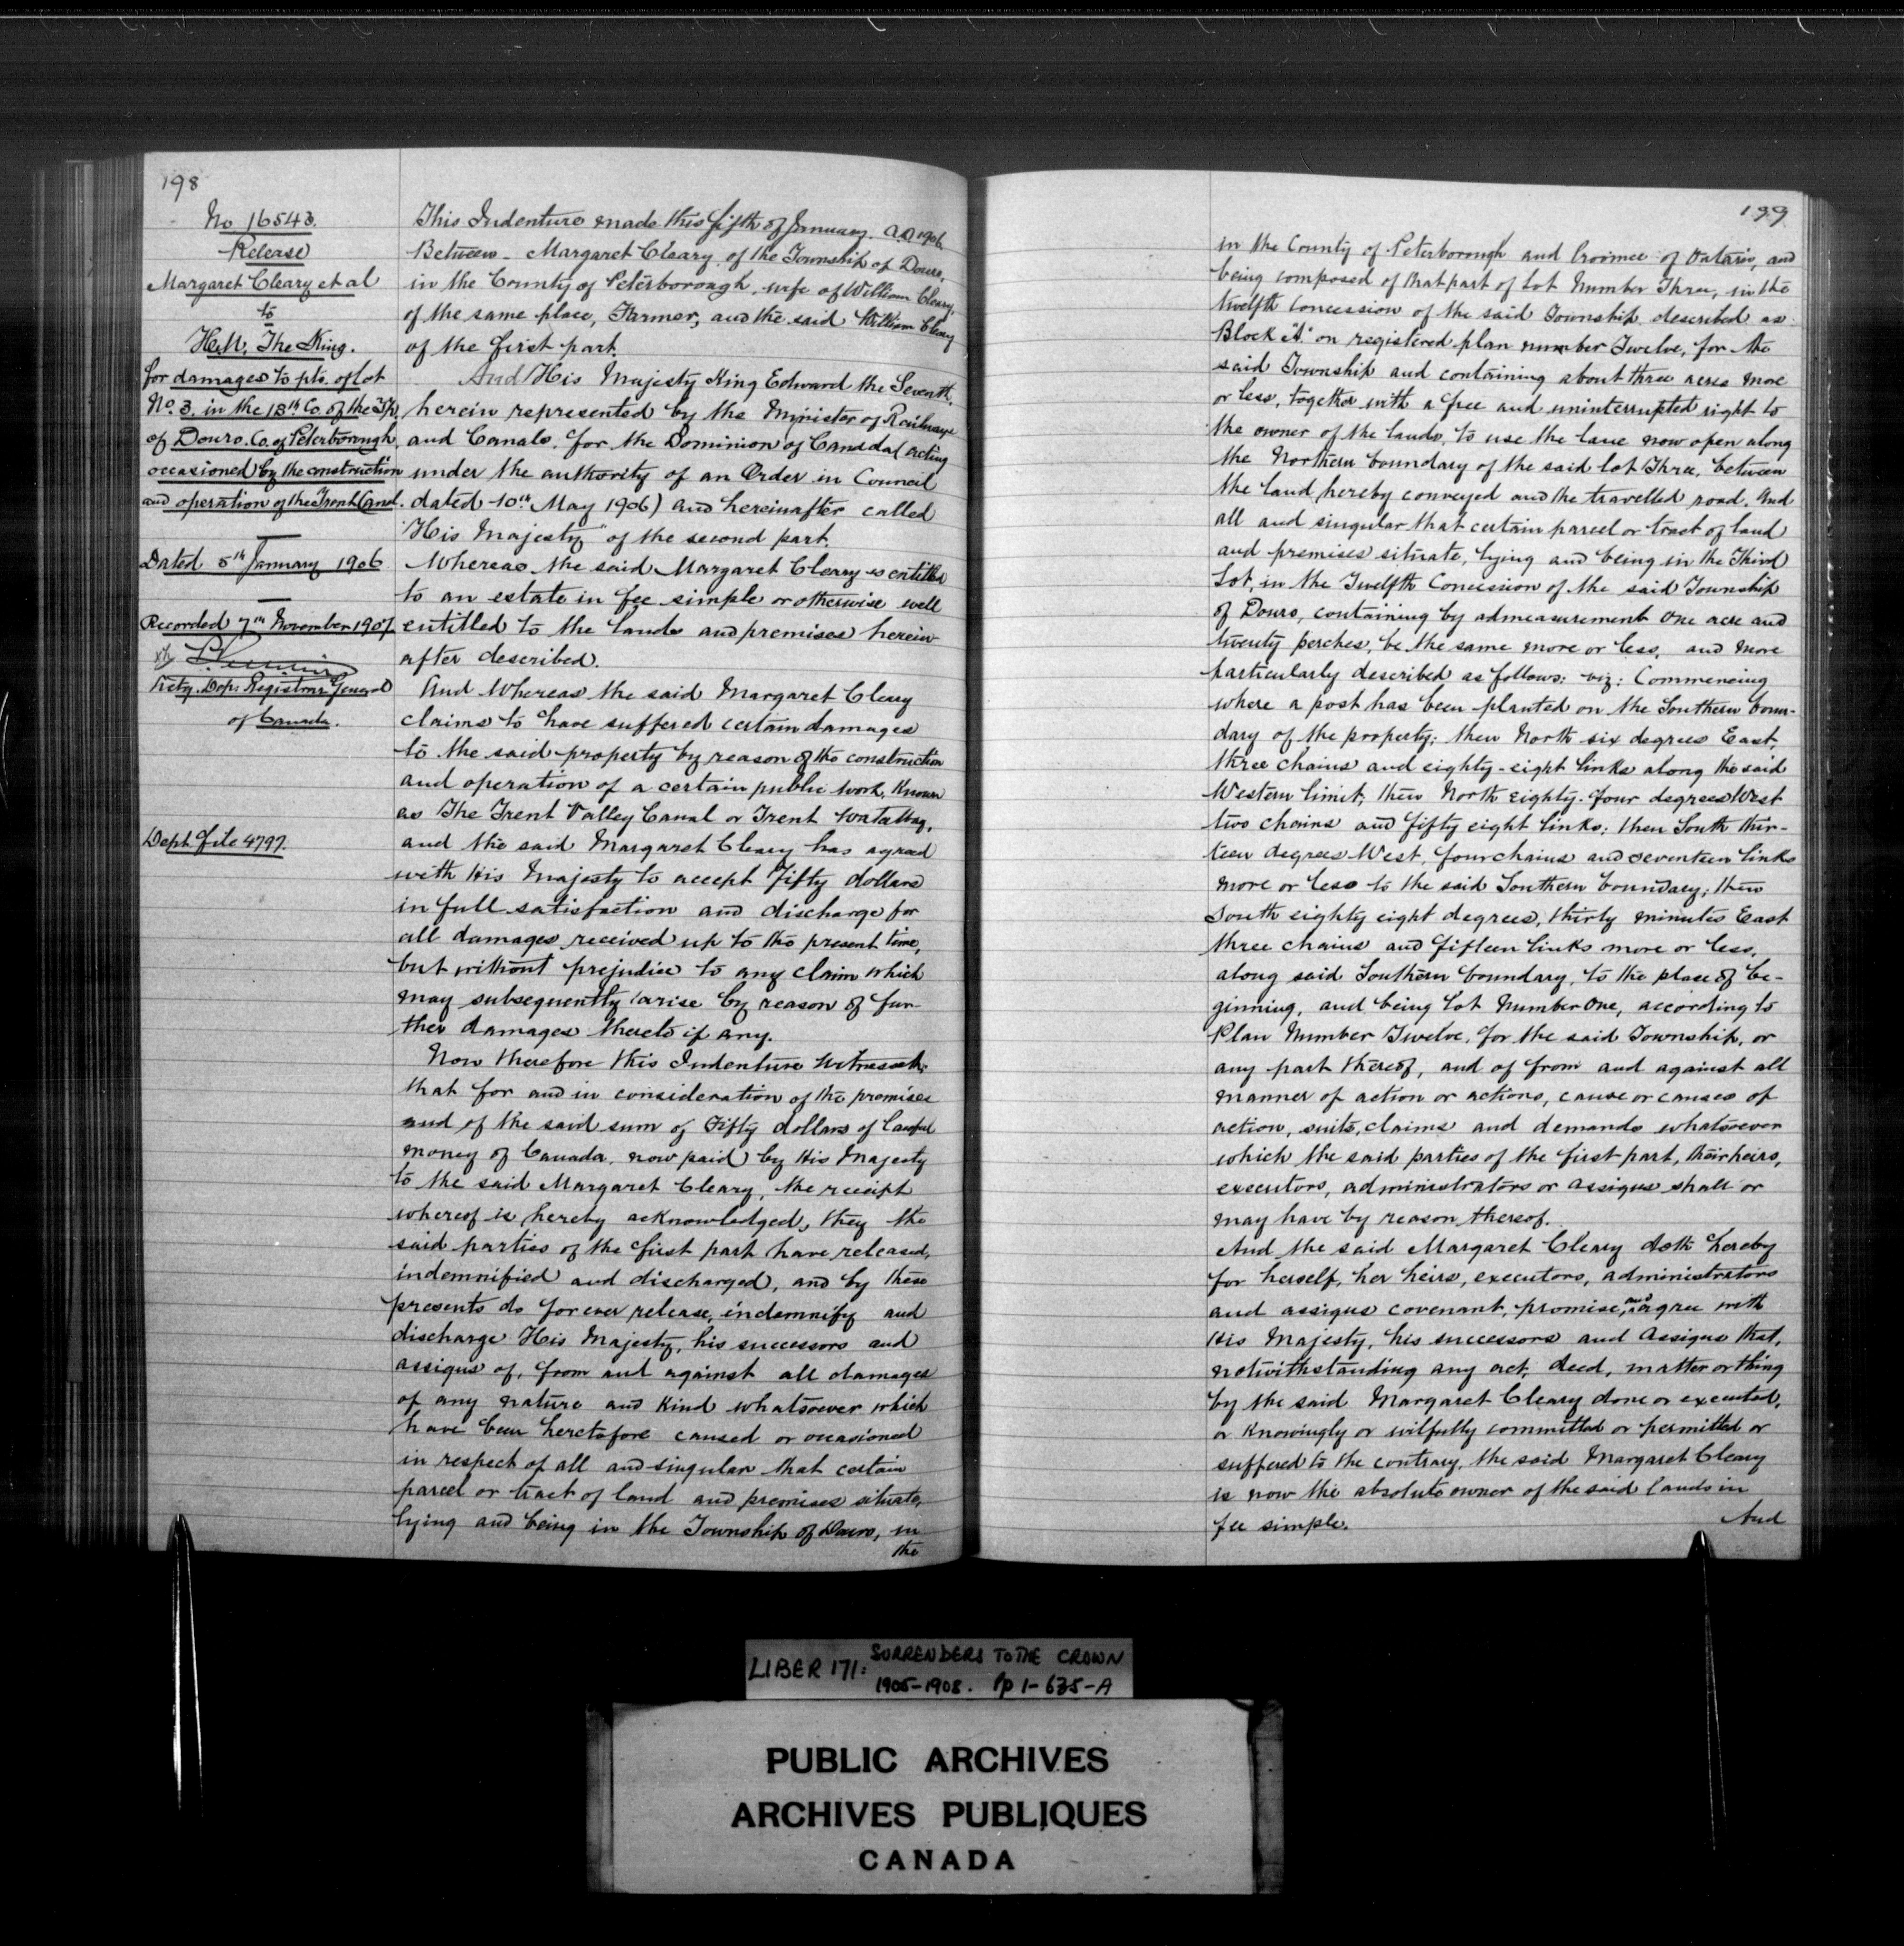 198
No 16543.
Release
Margaret Cleary et al
to
H.M. The King.
for damages to pts. of lot
No. 3. in the 13th Co. of the Tp.
of Douro. Co. of Peterborough
occasioned by the construction
and operation of the Trent Canal.
Dated 5th January 1906
Recorded 7th November 1907
Actg. Dep. Registrar General
of Canada.
Dept. file 4797.
This Indenture made this fifth of January. A.D 1906.
Between - Margaret Cleary of the Township of Douro,
in the County of Peterborough, wife of William Cleary,
of the same place, Farmer, and the said William Cleary
of the first part.
And His Majesty King Edward the Seventh,
herein represented by the Minister of Railways
and Canals, for the Dominion of Canada (acting
under the authority of an Order in Council
dated 10th May 1906) and hereinafter called
"His Majesty" of the second part.
Whereas the said Margaret Cleary is entitled
to an estate in fee simple or otherwise well
entitled to the lands and premises herein-
after described.
And Whereas the said Margaret Cleary
claims to have suffered certain damages
to the said property by reason of the construction
and operation of a certain public work, known
as The Trent Valley Canal or Trent Waterway,
and the said Margaret Cleary has agreed
with His Majesty to accept Fifty dollars
in full satisfaction and discharge for
all damages received up to the present time,
but without prejudice to any claim which
may subsequently arise by reason of fur-
ther damages thereto if any.
Now therefore this Indenture Witnesseth:
that for and in consideration of the premises
and of the said sum of Fifty dollars of lawful
money of Canada, now paid by His Majesty
to the said Margaret Cleary, the receipt
whereof is hereby acknowledged, they the
said parties of the first part have released,
indemnified and discharged, and by these
presents do forever release, indemnify and
discharge His Majesty, his successors and
assigns of, from and against all damages
of any nature and kind whatsoever which
have been heretofore caused or occasioned
in respect of all and singular that certain
parcel or tract of land and premises situate,
lying and being in the Township of Douro, in
the
199
in the County of Peterborough and Province of Ontario, and
being composed of that part of Lot Number Three, in the
twelfth concession of the said Township described as
Block "A" on registered plan number Twelve, for the
said Township and containing about three acres more
or less, together with a free and uninterrupted right to
the owner of the lands, to use the lane now open along
the Northern boundary of the said lot Three, between
the land hereby conveyed and the travelled road. And
all and singular that certain parcel or tract of land
and premises situate, lying and being in the Third
Lot, in the Twelfth Concession of the said Township
of Douro, containing by admeasurement One acre and
twenty perches, be the same more or less, and more
particularly described as follows: viz: Commencing
where a post has been planted on the Southern boun-
dary of the property; then North six degrees East,
three chains and eighty-eight links along the said
Western limit; then North eighty-four degrees West
two chains and fifty eight links; then South thir-
teen degrees West, four chains and seventeen links
more or less to the said Southern boundary; then
South eighty eight degrees, thirty minutes East
three chains and fifteen links more or less,
along said Southern boundary, to the place of be-
ginning, and being Lot Number One, according to
Plan Number Twelve, for the said Township, or
any part thereof, and of from and against all
manner of action or actions, cause or causes of
action, suits, claims and demands whatsoever
which the said parties of the first part, their heirs,
executors, administrators or assigns shall or
may have by reason thereof.
And the said Margaret Cleary doth hereby
for herself, her heirs, executors, administrators
and assigns covenant, promise, and agree with
His Majesty, his successors and Assigns that,
notwithstanding any act, deed, matter or thing
by the said Margaret Cleary done or executed,
or knowingly or wilfully committed or permitted or
suffered to the contrary, the said Margaret Cleary
is now the absolute owner of the said lands in
fee simple.
And
LIBER 171: SURRENDERS TO THE CROWN
1905-1908. Pp 1-635-A
PUBLIC ARCHIVES
ARCHIVES PUBLIQUES
CANADA